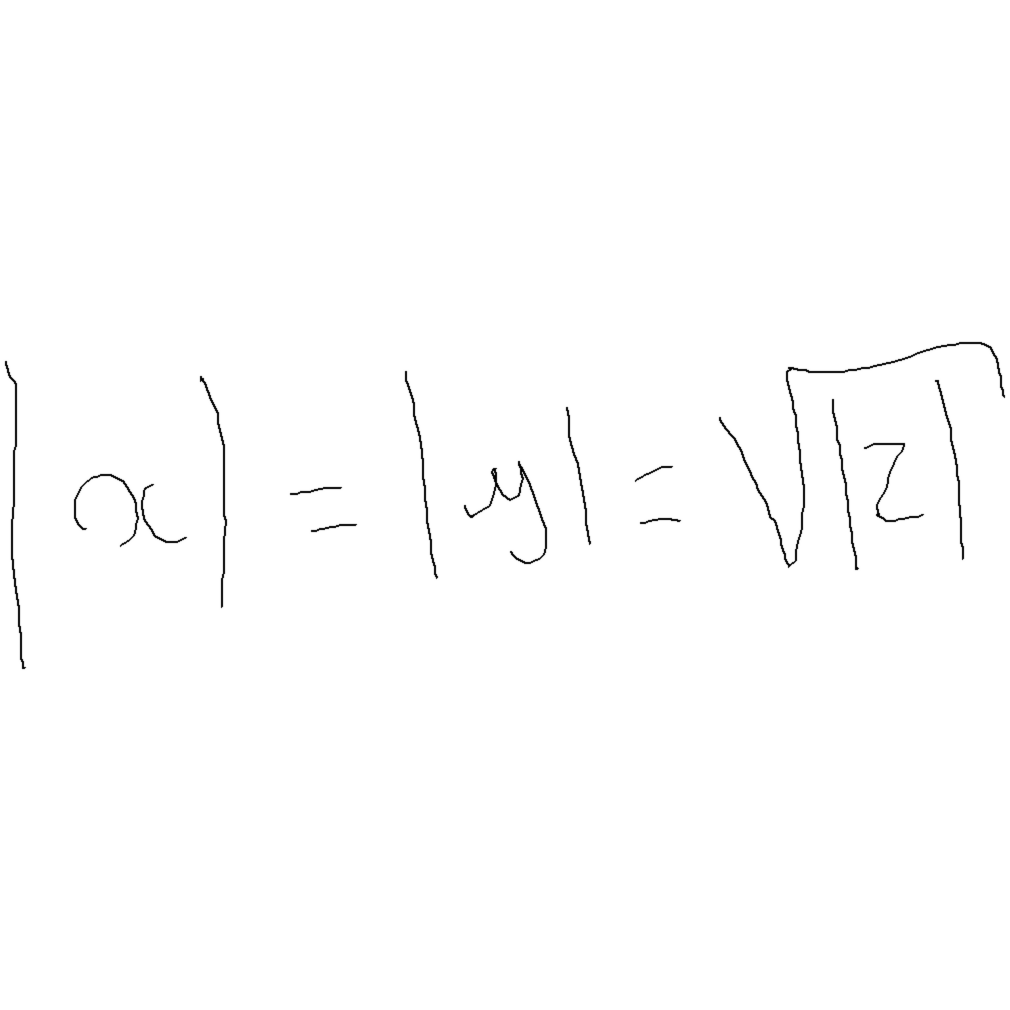 |x| = |y| = √|z|